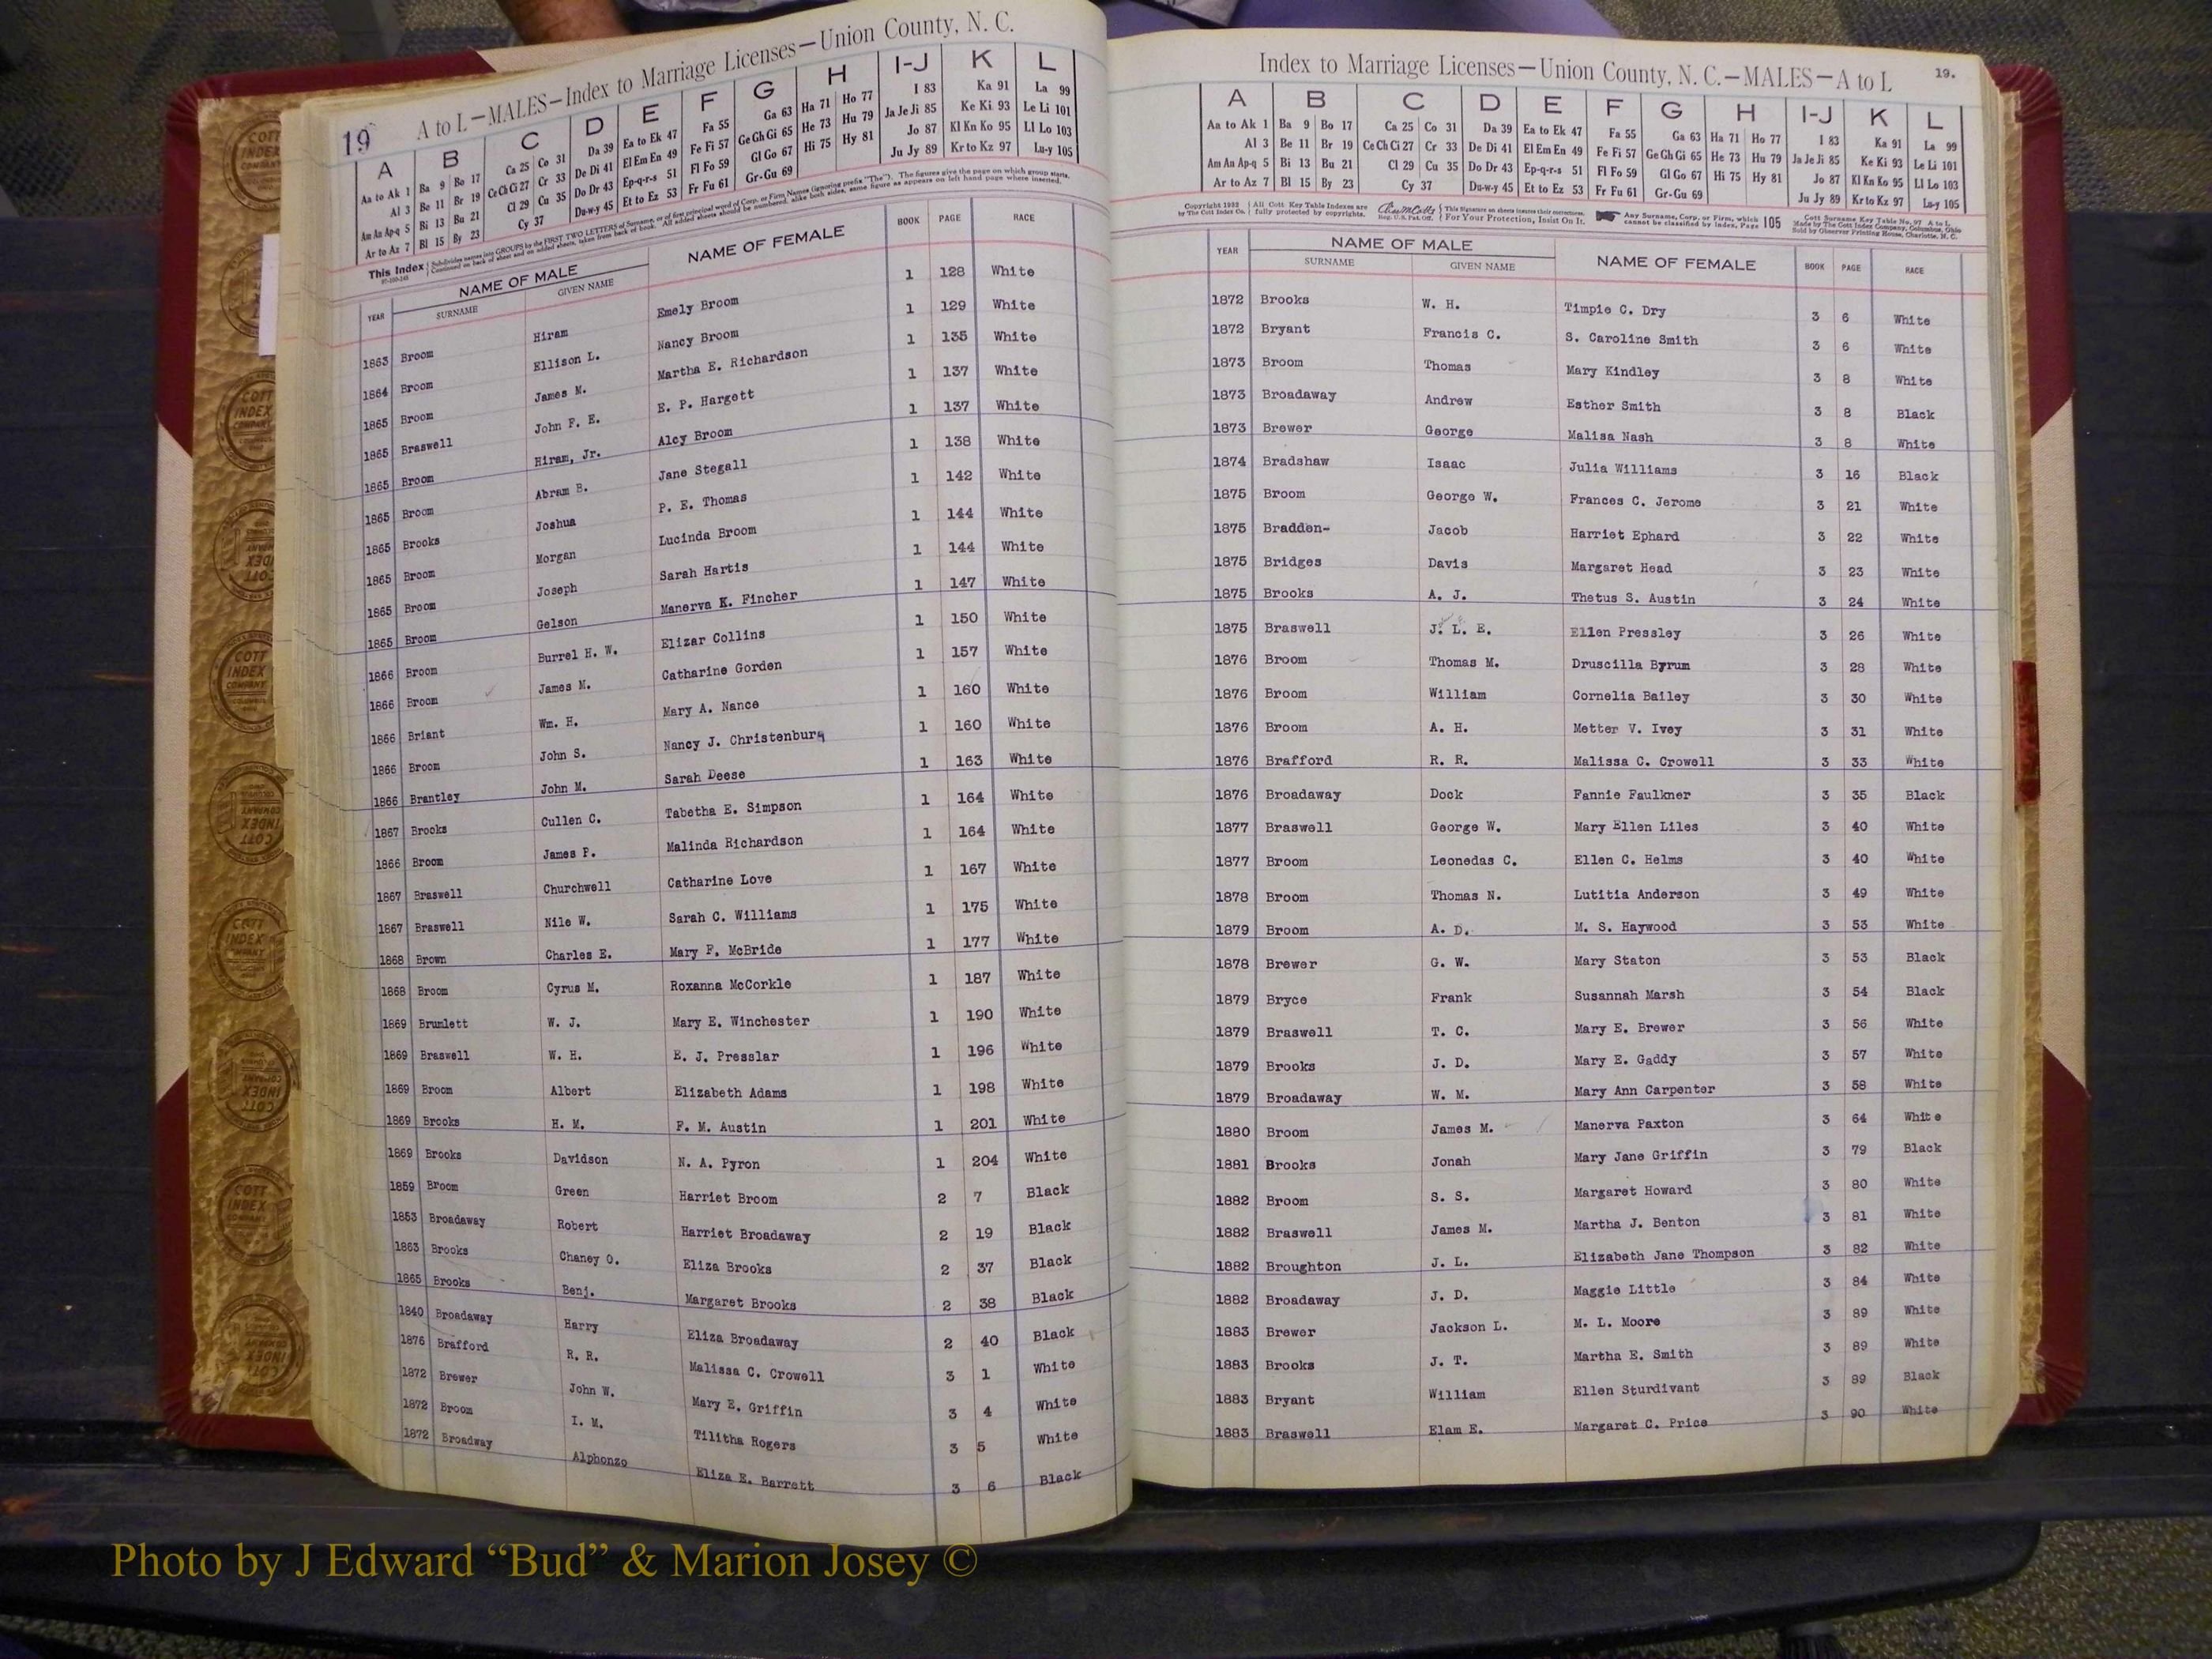 19 A to L—MALES—Index to Marriage Licenses—Union County, N. C.
A B C D E F G H I-J K L
Aa to Ak 1 Ba 9 Bo 17 Ca 25 Co 31 Da 39 Ea to Ek 47 Fa 55 Ga 63 Ha 71 Ho 77 I 83 Ka 91 La 99
Al 3 Be 11 Br 19 Ce Ch Ci 27 Cr 33 De Di 41 El Em En 49 Fe Fi 57 Ge Gh Gi 65 He 73 Hu 79 Ja Je Ji 85 Ke Ki 93 Le Li 101
Am An Ap-q 5 Bi 13 Bu 21 Cl 29 Cu 35 Do Dr 43 Ep-q-r-s 51 Fl Fo 59 Gl Go 67 Hi 75 Hy 81 Jo 87 Kl Kn Ko 95 Ll Lo 103
Ar to Az 7 Bl 15 By 23 Cy 37 Du-w-y 45 Et to Ez 53 Fr Fu 61 Gr-Gu 69 Ju Jy 89 Kr to Kz 97 Lu-y 105
This Index Subdivides names into GROUPS by the FIRST TWO LETTERS of Surname, or of first principal word of Corp. or Firm Names (ignoring prefix "The"). The figures give the page on which group starts.
Continued on back of sheet and on added sheets, taken from back of book. All added sheets should be numbered, alike both sides, same figure as appears on left hand page where inserted.
YEAR NAME OF MALE NAME OF FEMALE BOOK PAGE RACE
SURNAME GIVEN NAME
1863 Broom Hiram Emely Broom 1 128 White
1864 Broom Ellison L. Nancy Broom 1 129 White
1865 Broom James M. Martha E. Richardson 1 135 White
1865 Braswell John P. E. E. P. Hargett 1 137 White
1865 Broom Hiram, Jr. Alcy Broom 1 137 White
1865 Broom Abram B. Jane Stegall 1 138 White
1865 Brooks Joshua P. E. Thomas 1 142 White
1865 Broom Morgan Lucinda Broom 1 144 White
1865 Broom Joseph Sarah Hartis 1 144 White
1865 Broom Gelson Manerva K. Fincher 1 147 White
1866 Broom Burrel H. W. Elizar Collins 1 150 White
1866 Broom James M. Catharine Gorden 1 157 White
1866 Briant Wm. H. Mary A. Nance 1 160 White
1866 Broom John S. Nancy J. Christenbury 1 160 White
1866 Brantley John M. Sarah Deese 1 163 White
1867 Brooks Cullen C. Tabetha E. Simpson 1 164 White
1866 Broom James P. Malinda Richardson 1 164 White
1867 Braswell Churchwell Catharine Love 1 167 White
1867 Braswell Nile W. Sarah C. Williams 1 175 White
1868 Brown Charles E. Mary F. McBride 1 177 White
1868 Broom Cyrus M. Roxanna McCorkle 1 187 White
1869 Brumlett W. J. Mary E. Winchester 1 190 White
1869 Braswell W. H. E. J. Presslar 1 196 White
1869 Broom Albert Elizabeth Adams 1 198 White
1869 Brooks H. M. F. M. Austin 1 201 White
1869 Brooks Davidson N. A. Pyron 1 204 White
1859 Broom Green Harriet Broom 2 7 Black
1853 Broadaway Robert Harriet Broadaway 2 19 Black
1863 Brooks Chaney O. Eliza Brooks 2 37 Black
1865 Brooks Benj. Margaret Brooks 2 38 Black
1840 Broadaway Harry Eliza Broadaway 2 40 Black
1876 Brafford R. R. Malissa C. Crowell 3 1 White
1872 Brewer John W. Mary E. Griffin 3 4 White
1872 Broom I. M. Tilitha Rogers 3 5 White
1872 Broadway Alphonzo Eliza E. Barrett 3 6 Black
Index to Marriage Licenses—Union County, N. C.—MALES—A to L 19.
A B C D E F G H I-J K L
Aa to Ak 1 Ba 9 Bo 17 Ca 25 Co 31 Da 39 Ea to Ek 47 Fa 55 Ga 63 Ha 71 Ho 77 I 83 Ka 91 La 99
Al 3 Be 11 Br 19 Ce Ch Ci 27 Cr 33 De Di 41 El Em En 49 Fe Fi 57 Ge Gh Gi 65 He 73 Hu 79 Ja Je Ji 85 Ke Ki 93 Le Li 101
Am An Ap-q 5 Bi 13 Bu 21 Cl 29 Cu 35 Do Dr 43 Ep-q-r-s 51 Fl Fo 59 Gl Go 67 Hi 75 Hy 81 Jo 87 Kl Kn Ko 95 Ll Lo 103
Ar to Az 7 Bl 15 By 23 Cy 37 Du-w-y 45 Et to Ez 53 Fr Fu 61 Gr-Gu 69 Ju Jy 89 Kr to Kz 97 Lu-y 105
Copyright 1932 All Cott Key Table Indexes are This Signature on sheets insures their correctness. Any Surname, Corp. or Firm, which 105 Cott Surname Key Table No. 97 A to L
by The Cott Index Co. fully protected by copyrights. Reg. U.S. Pat. Off. For Your Protection, Insist On It. cannot be classified by Index, Page Made by The Cott Index Company, Columbus, Ohio
Sold by Observer Printing House, Charlotte, N. C.
YEAR NAME OF MALE NAME OF FEMALE BOOK PAGE RACE
SURNAME GIVEN NAME
1872 Brooks W. H. Timpie C. Dry 3 6 White
1872 Bryant Francis C. S. Caroline Smith 3 6 White
1873 Broom Thomas Mary Kindley 3 8 White
1873 Broadaway Andrew Esther Smith 3 8 Black
1873 Brewer George Malisa Nash 3 8 White
1874 Bradshaw Isaac Julia Williams 3 16 Black
1875 Broom George W. Frances C. Jerome 3 21 White
1875 Bradden- Jacob Harriet Ephard 3 22 White
1875 Bridges Davis Margaret Head 3 23 White
1875 Brooks A. J. Thetus S. Austin 3 24 White
1875 Braswell J. L. E. Ellen Pressley 3 26 White
1876 Broom Thomas M. Druscilla Byrum 3 28 White
1876 Broom William Cornelia Bailey 3 30 White
1876 Broom A. H. Metter V. Ivey 3 31 White
1876 Brafford R. R. Malissa C. Crowell 3 33 White
1876 Broadaway Dock Fannie Faulkner 3 35 Black
1877 Braswell George W. Mary Ellen Liles 3 40 White
1877 Broom Leonedas C. Ellen C. Helms 3 40 White
1878 Broom Thomas N. Lutitia Anderson 3 49 White
1879 Broom A. D. M. S. Haywood 3 53 White
1878 Brewer G. W. Mary Staton 3 53 Black
1879 Bryce Frank Susannah Marsh 3 54 Black
1879 Braswell T. C. Mary E. Brewer 3 56 White
1879 Brooks J. D. Mary E. Gaddy 3 57 White
1879 Broadaway W. M. Mary Ann Carpenter 3 58 White
1880 Broom James M. Manerva Paxton 3 64 White
1881 Brooks Jonah Mary Jane Griffin 3 79 Black
1882 Broom S. S. Margaret Howard 3 80 White
1882 Braswell James M. Martha J. Benton 3 81 White
1882 Broughton J. L. Elizabeth Jane Thompson 3 82 White
1882 Broadaway J. D. Maggie Little 3 84 White
1883 Brewer Jackson L. M. L. Moore 3 89 White
1883 Brooks J. T. Martha E. Smith 3 89 White
1883 Bryant William Ellen Sturdivant 3 89 Black
1883 Braswell Elam E. Margaret C. Price 3 90 White
Photo by J Edward “Bud” & Marion Josey ©